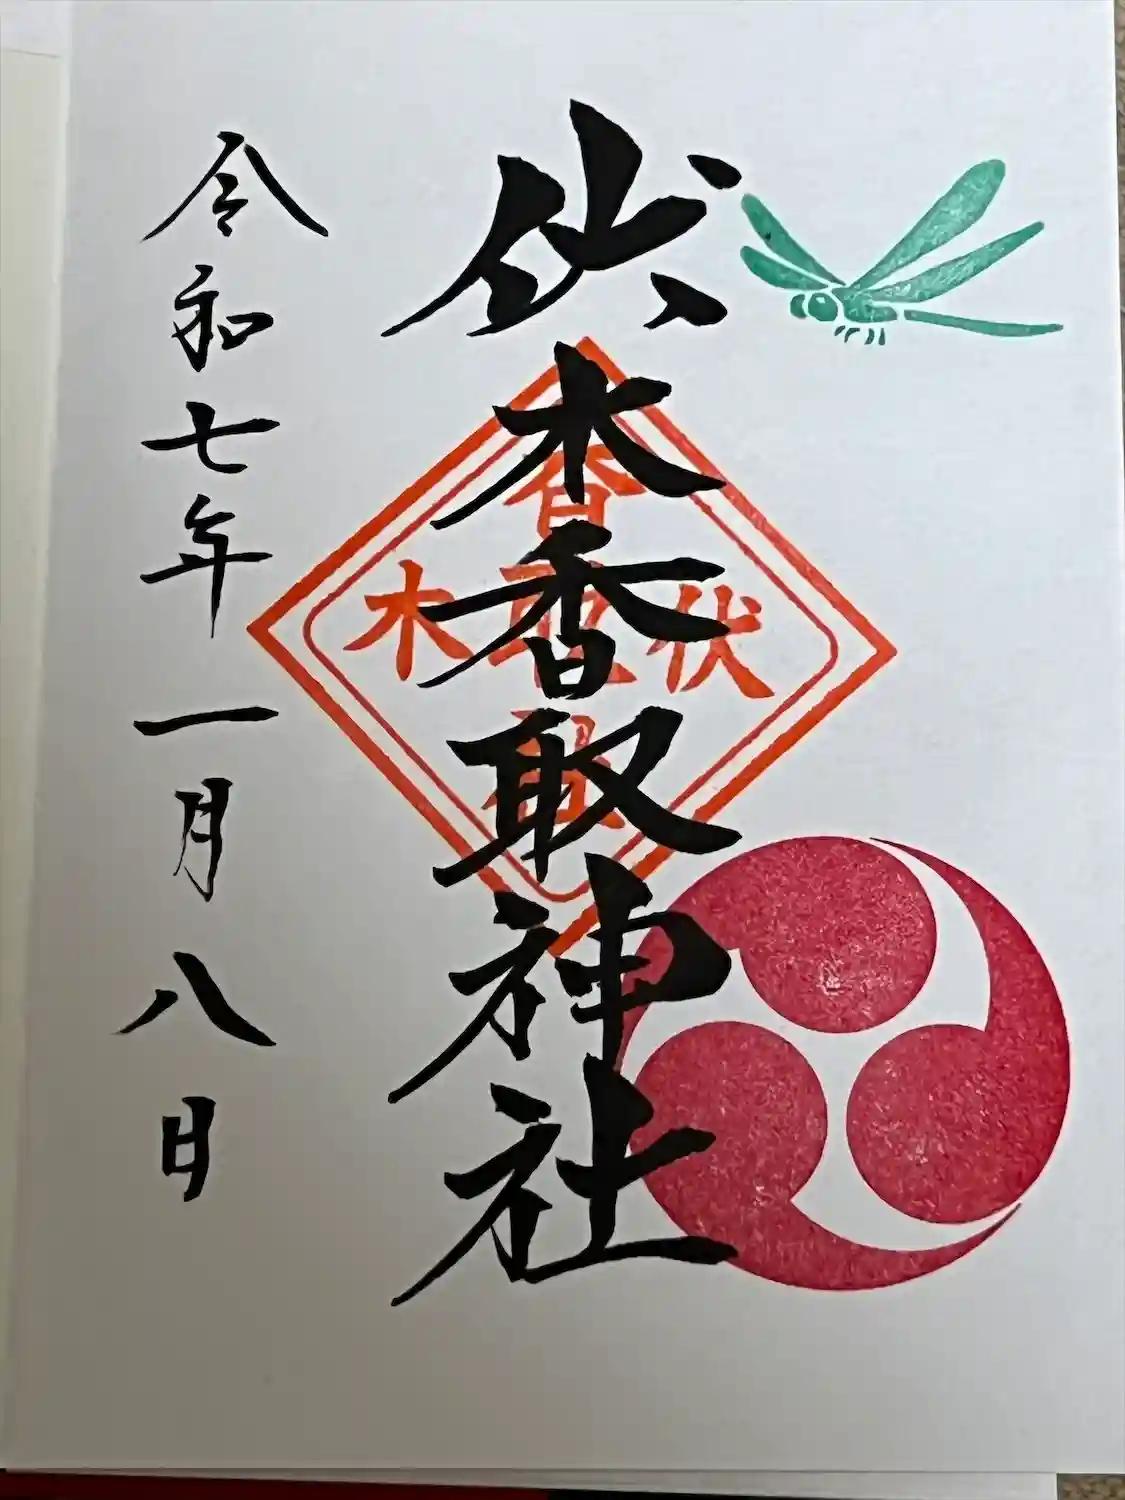 伏木香取神社
香取神社
伏木
令和七年一月八日